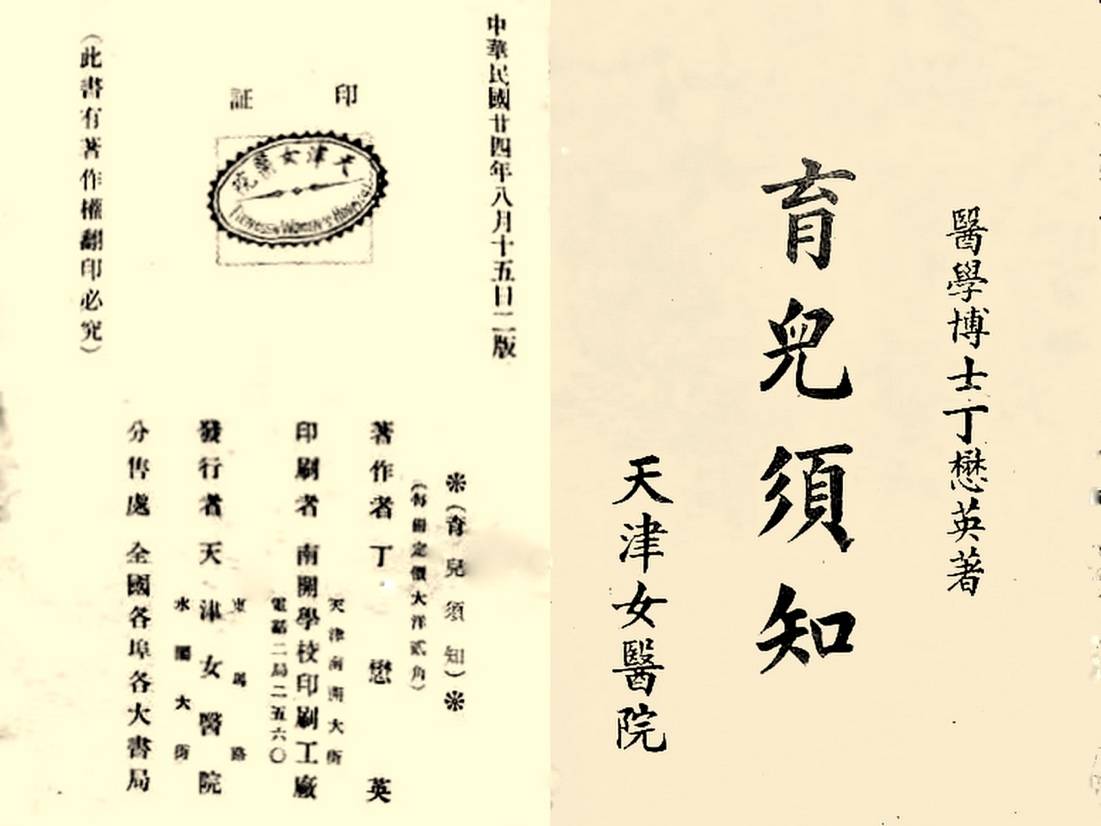 醫學博士丁懋英著
育兒須知
天津女醫院
中華民國廿四年八月十五日二版
印証
天津女醫院
Tientsin Women's Hospital
(此書有著作權翻印必究)
※(育兒須知)※
(每冊定價大洋貳角)
著作者 丁懋英
天津南開大街
印刷者 南開學校印刷工廠
電話二局二五六〇
東馬路
發行者 天津女醫院
水閣大街
分售處 全國各埠各大書局